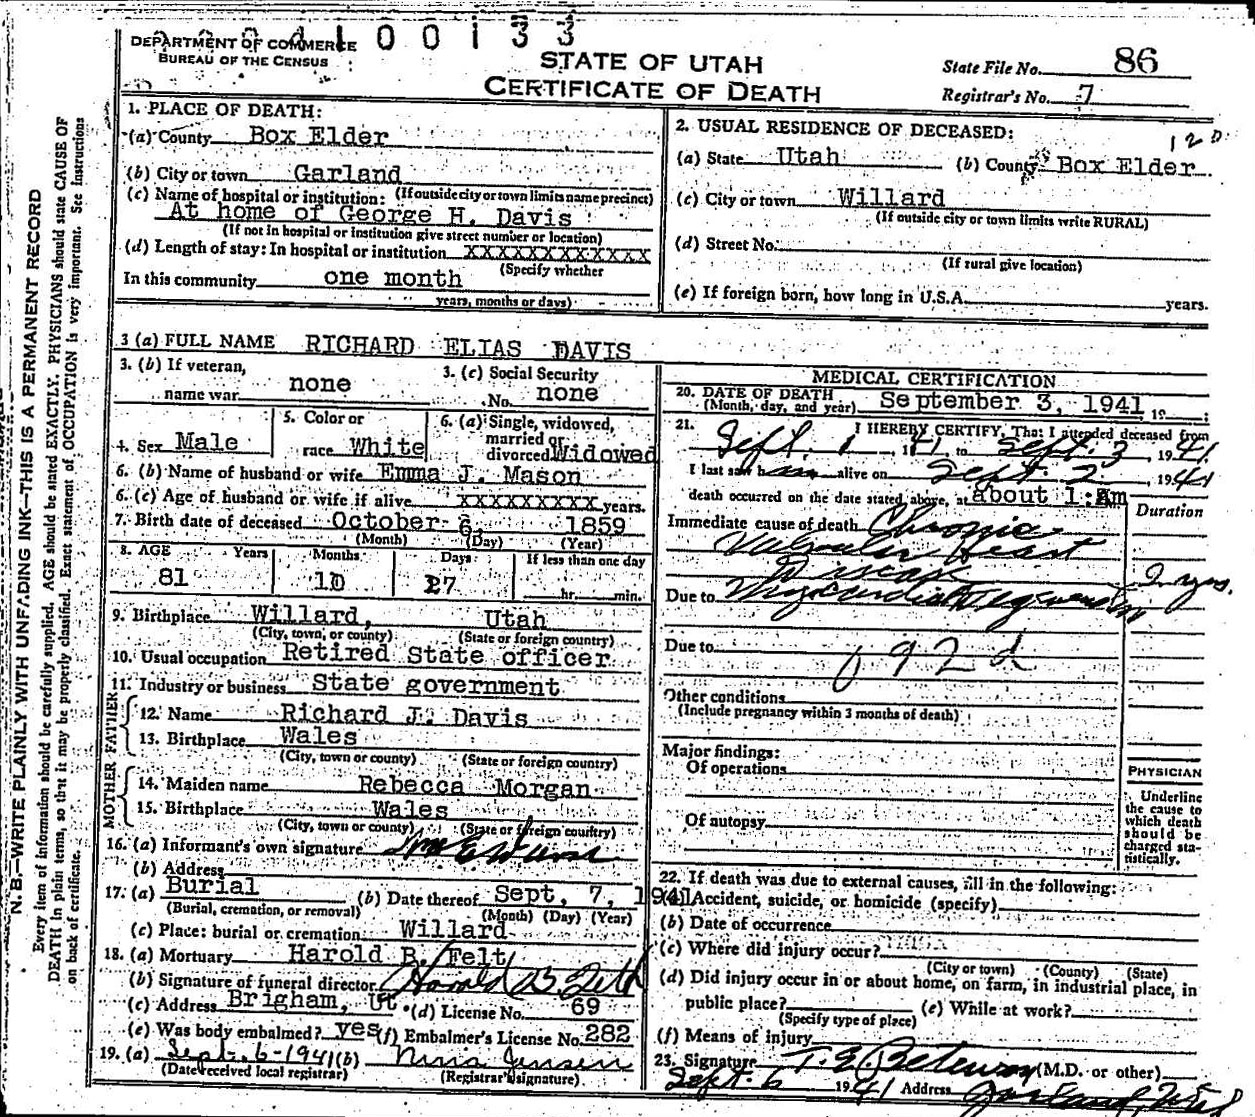 DEPARTMENT OF COMMERCE
BUREAU OF THE CENSUS
4 1 0 0 1 3 3
STATE OF UTAH
CERTIFICATE OF DEATH
State File No. 86
Registrar's No. 7
1. PLACE OF DEATH:
(a) County Box Elder
(b) City or town Garland
(c) Name of hospital or institution: (If outside city or town limits name precinct)
At home of George H. Davis
(If not in hospital or institution give street number or location)
(d) Length of stay: In hospital or institution XXXXXXXXXXXX
(Specify whether
In this community one month
years, months or days)
2. USUAL RESIDENCE OF DECEASED:
120
(a) State Utah (b) County Box Elder
(c) City or town Willard
(If outside city or town limits write RURAL)
(d) Street No.
(If rural give location)
(e) If foreign born, how long in U.S.A. years.
3 (a) FULL NAME RICHARD ELIAS DAVIS
3. (b) If veteran, name war none
3. (c) Social Security No. none
4. Sex Male
5. Color or race White
6. (a) Single, widowed, married or divorced Widowed
6. (b) Name of husband or wife Emma J. Mason
6. (c) Age of husband or wife if alive XXXXXXXXX years.
7. Birth date of deceased October 6, 1859
(Month) (Day) (Year)
8. AGE Years Months Days If less than one day
81 10 27 hr. min.
9. Birthplace Willard, Utah
(City, town, or county) (State or foreign country)
10. Usual occupation Retired State officer
11. Industry or business State government
FATHER
12. Name Richard J. Davis
13. Birthplace Wales
(City, town or county) (State or foreign country)
MOTHER
14. Maiden name Rebecca Morgan
15. Birthplace Wales
(City, town or county) (State or foreign country)
16. (a) Informant's own signature
(b) Address
17. (a) Burial (b) Date thereof Sept, 7, 1941
(Burial, cremation, or removal) (Month) (Day) (Year)
(c) Place: burial or cremation Willard
18. (a) Mortuary Harold B. Felt
(b) Signature of funeral director Harold B. Felt
(c) Address Brigham, Ut (d) License No. 69
(e) Was body embalmed? yes (f) Embalmer's License No. 282
19. (a) Sept. 6-1941 (b) Nina Jensen
(Date received local registrar) (Registrar's signature)
MEDICAL CERTIFICATION
20. DATE OF DEATH
(Month, day, and year) September 3, 1941 19 ;
21. I HEREBY CERTIFY, That I attended deceased from
Sept. 1, 1941, to Sept. 3, 1941
I last saw him alive on Sept. 2 1941
death occurred on the date stated above, at about 1: Am
Duration
Immediate cause of death Chronic
Valvular Heart
Disease 2 yrs.
Due to Myocardial Degeneration
Due to 092d
Other conditions
(Include pregnancy within 3 months of death)
Major findings:
Of operations
Of autopsy
PHYSICIAN
Underline
the cause to
which death
should be
charged sta-
tistically.
22. If death was due to external causes, fill in the following:
(a) Accident, suicide, or homicide (specify)
(b) Date of occurrence
(c) Where did injury occur?
(City or town) (County) (State)
(d) Did injury occur in or about home, on farm, in industrial place, in
public place? (e) While at work?
(Specify type of place)
(f) Means of injury
23. Signature (M.D. or other)
Sept. 6 1941 Address Garland, Utah
N. B.—WRITE PLAINLY WITH UNFADING INK—THIS IS A PERMANENT RECORD
Every item of information should be carefully supplied. AGE should be stated EXACTLY. PHYSICIANS should state CAUSE OF
DEATH in plain terms, so that it may be properly classified. Exact statement of OCCUPATION is very important. See Instructions
on back of certificate.